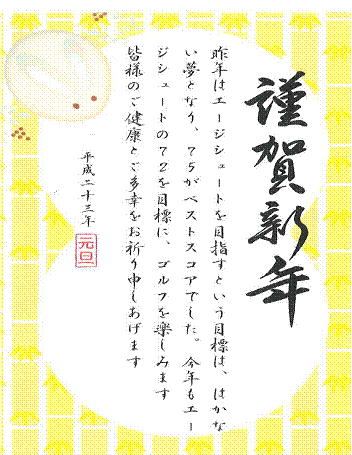 謹賀新年
昨年はエージシュートを目指すという目標は、はかな
い夢となり、75がベストスコアでした。今年もエー
ジシュートの72を目標に、ゴルフを楽しみます
皆様のご健康とご多幸をお祈り申しあげます
平成二十三年
元旦